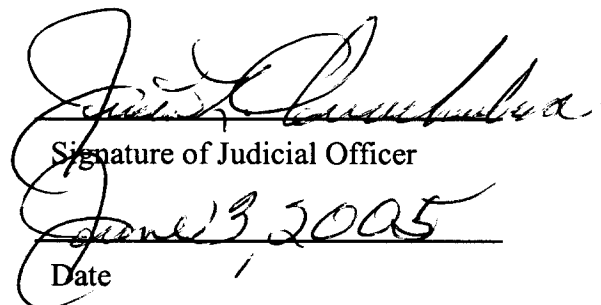 Signature of Judicial Officer
June 13, 2005
Date